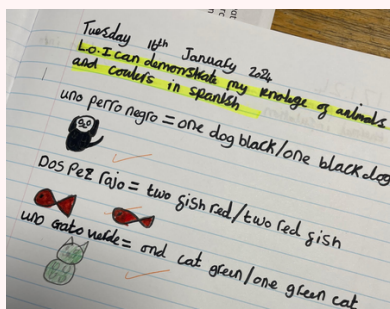 Tuesday 16th January 2024
L.O. I can demonstrate my knolege of animals
and coulers in spanish
uno perro negro = one dog black/one black dog
Dos Pez rojo = two fish red/two red fish
uno Gato verde = ond cat green/one green cat